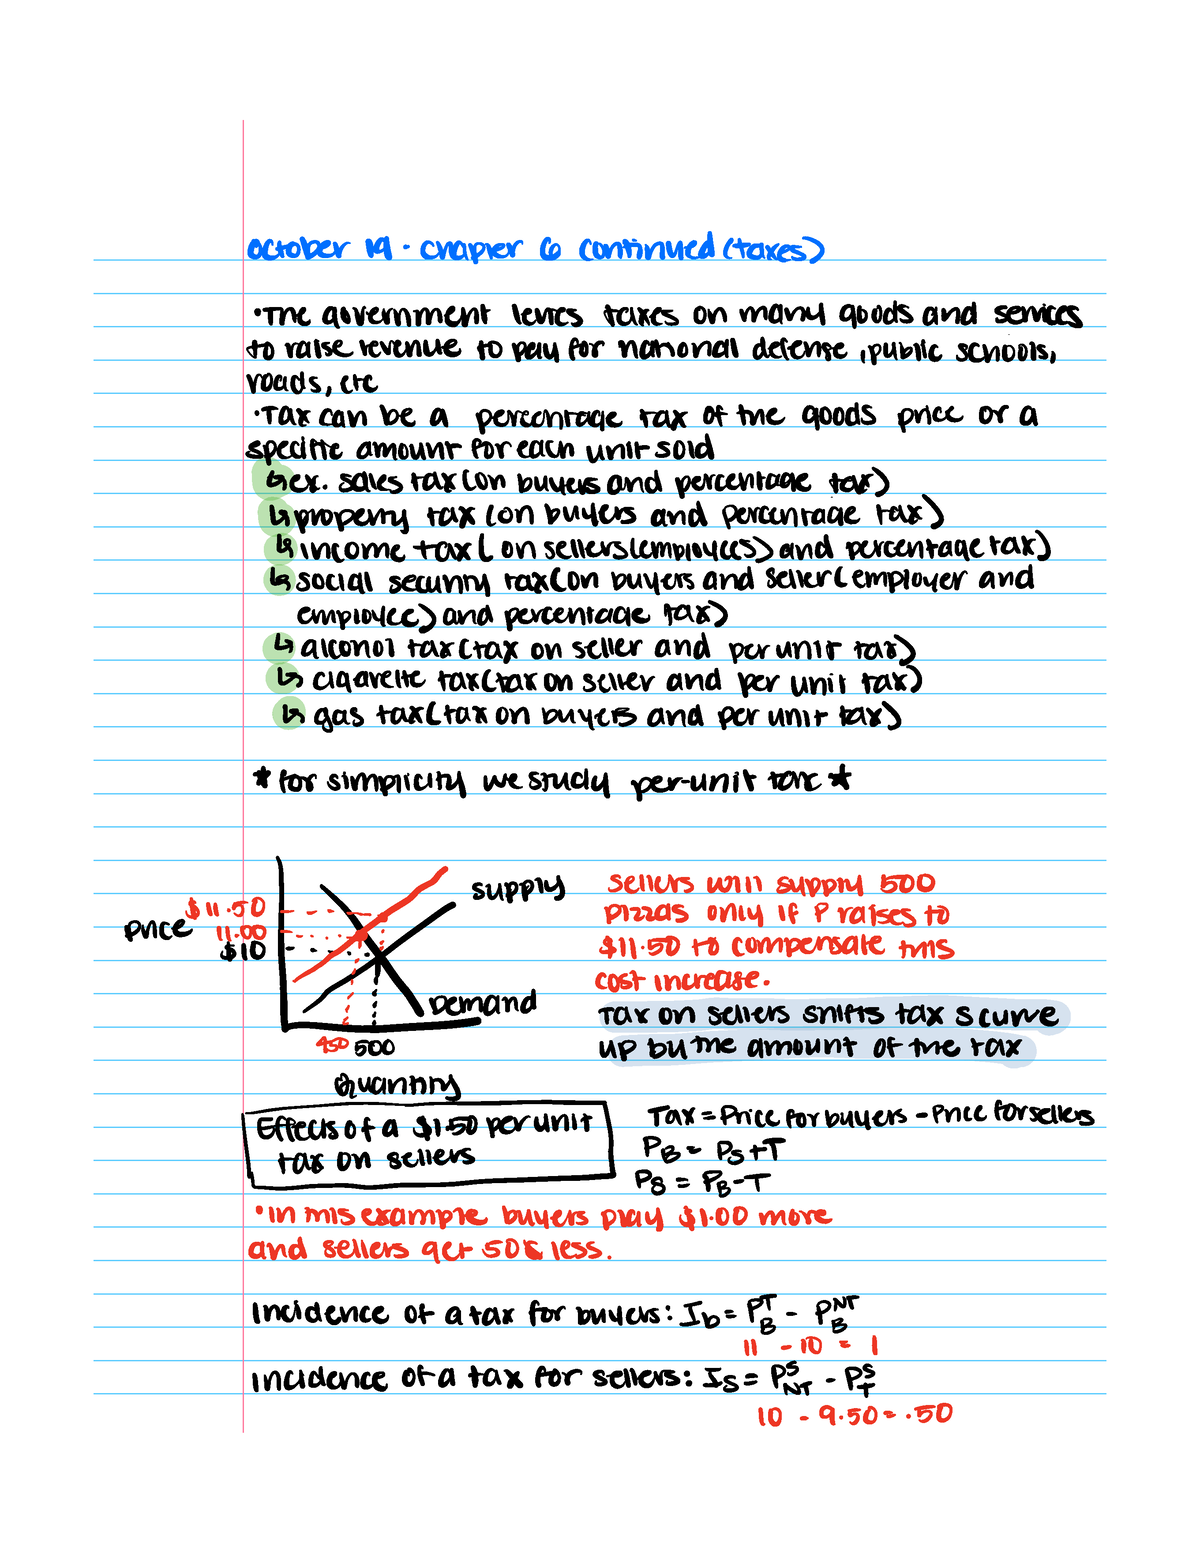 October 19 · Chapter 6 continued (taxes)
· The government levies taxes on many goods and services
to raise revenue to pay for national defense, public schools,
roads, etc
· Tax can be a percentage tax of the goods price or a
specific amount for each unit sold
↳ ex. sales tax (on buyers and percentage tax)
↳ property tax (on buyers and percentage tax)
↳ income tax (on sellers (employees) and percentage tax)
↳ social security tax (on buyers and seller (employer and
employee) and percentage tax)
↳ alcohol tax (tax on seller and per unit tax)
↳ cigarette tax (tax on seller and per unit tax)
↳ gas tax (tax on buyers and per unit tax)
* for simplicity we study per-unit tax *
Price
$11.50
11.00
$10
Supply
Demand
450 500
Quantity
Sellers will supply 500
pizzas only if P raises to
$11.50 to compensate this
cost increase.
Tax on sellers shifts tax S curve
up by the amount of the tax
Effects of a $1.50 per unit
tax on sellers
Tax = Price for buyers - Price for sellers
PB = PS + T
PS = PB - T
· In this example buyers play $1.00 more
and sellers get 50¢ less.
Incidence of a tax for buyers: Ib = P^T_B - P^NT_B
11 - 10 = 1
Incidence of a tax for sellers: Is = P^S_NT - P^S_T
10 - 9.50 = .50